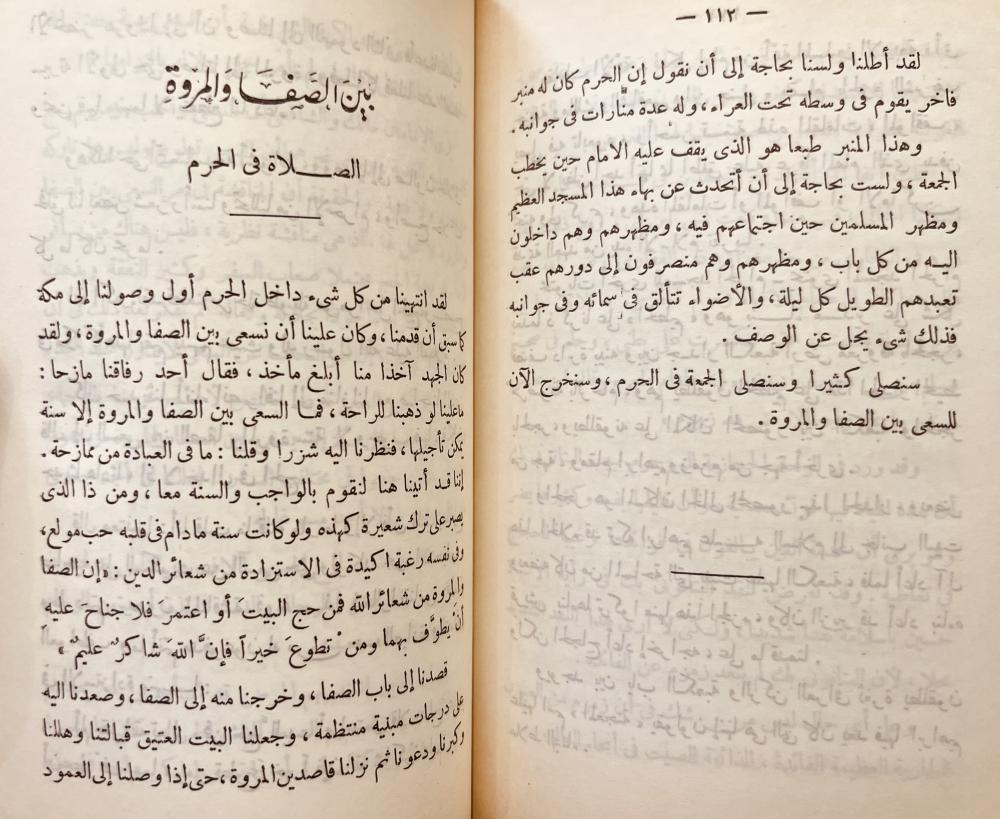 — ١١٢ —
لقد أطلنا ولسنا بحاجة إلى أن نقول إن الحرم كان له منبر
فاخر يقوم فى وسطه تحت العراء، وله عدة منارات فى جوانبه.
وهذا المنبر طبعا هو الذى يقف عليه الامام حين يخطب
الجمعة، ولست بحاجة إلى أن أتحدث عن بهاء هذا المسجد العظيم
ومظهر المسلمين حين اجتماعهم فيه، ومظهرهم وهم داخلون
اليه من كل باب، ومظهرهم وهم منصرفون إلى دورهم عقب
تعبدهم الطويل كل ليلة، والأضواء تتألق فى سمائه وفى جوانبه
فذلك شىء يجل عن الوصف.
سنصلى كثيرا وسنصلى الجمعة فى الحرم، وسنخرج الآن
للسعى بين الصفا والمروة.
بَيْنَ الصَّفَا وَالمرْوَةِ
الصلاة فى الحرم
لقد انتهينا من كل شىء داخل الحرم أول وصولنا إلى مكة
كما سبق أن قدمنا، وكان علينا أن نسعى بين الصفا والمروة، ولقد
كان الجهد آخذا منا أبلغ مأخذ، فقال أحد رفاقنا مازحا:
ماعلينا لو ذهبنا للراحة، فما السعى بين الصفا والمروة إلا سنة
يمكن تأجيلها، فنظرنا اليه شزرا وقلنا: ما فى العبادة من ممازحة.
إننا قد أتينا هنا لنقوم بالواجب والسنة معا، ومن ذا الذى
يصبر على ترك شعيرة كهذه ولو كانت سنة مادام فى قلبه حب مولع،
وفى نفسه رغبة اكيدة فى الاستزادة من شعائر الدين: «إن الصفا
والمروة من شعائر الله فمن حج البيتَ أو اعتمرَ فلا جناحَ عليه
أنْ يطوَّف بهما ومنْ تطوعَ خيراً فإنَّ اللهَ شاكرٌ عليمٌ»
قصدنا إلى باب الصفا، وخرجنا منه إلى الصفا، وصعدنا اليه
على درجات مبنية منتظمة، وجعلنا البيت العتيق قبالتنا وهللنا
وكبرنا ودعونا ثم نزلنا قاصدين المروة، حتى إذا وصلنا إلى العمود